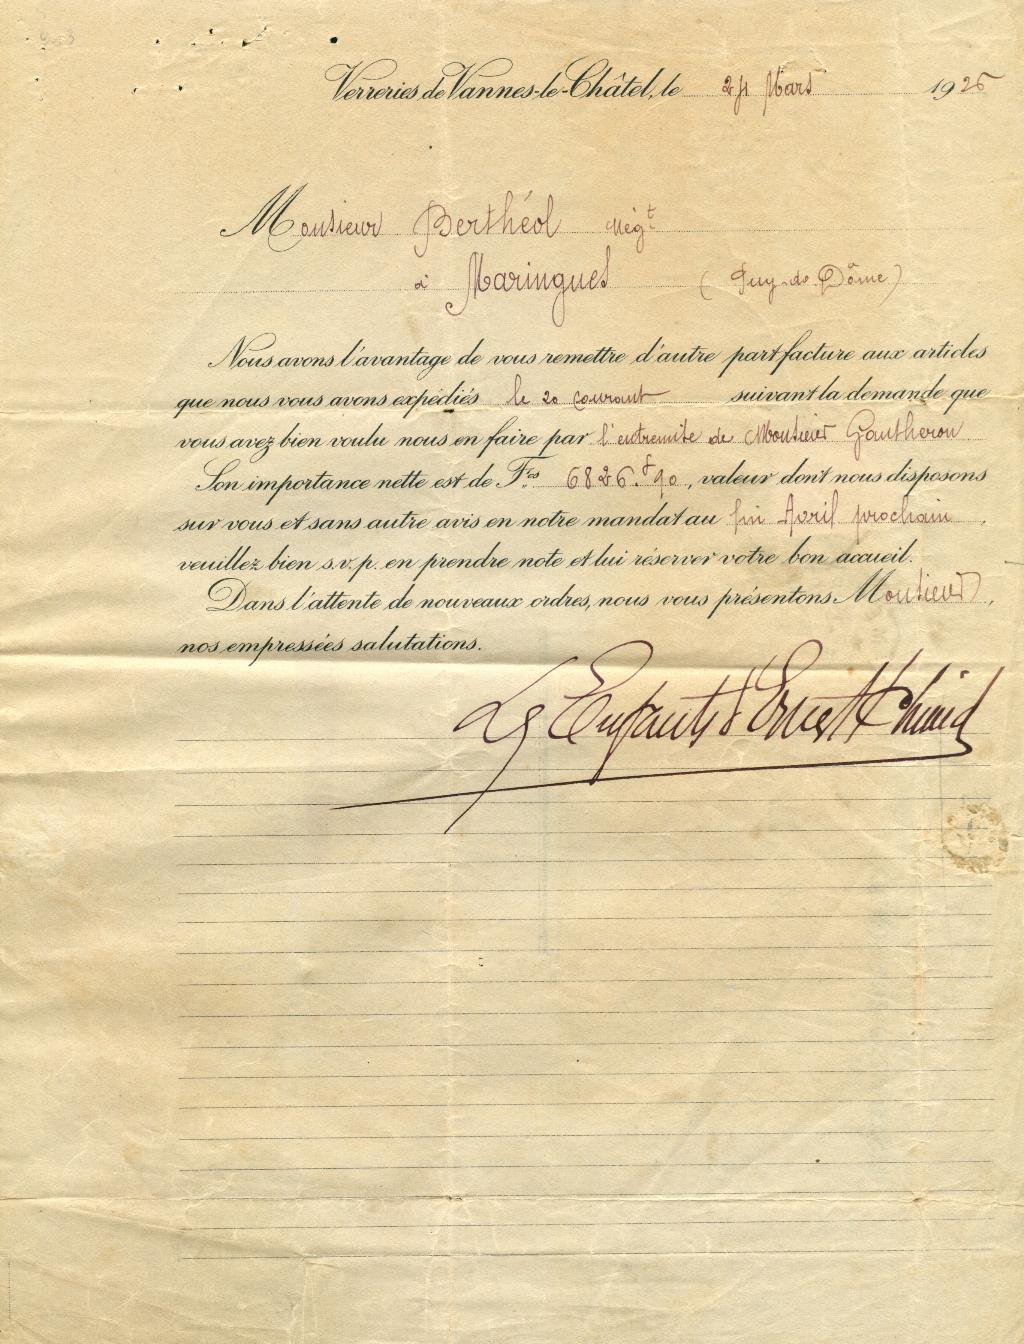 Verreries de Vannes-le-Châtel, le 24 Mars 1926
Monsieur Berthéol Négt
à Maringues (Puy-de-Dôme)
Nous avons l'avantage de vous remettre d'autre part facture aux articles
que nous vous avons expédiés le 20 courant suivant la demande que
vous avez bien voulu nous en faire par l'entremise de Monsieur Gautheron
Son importance nette est de Frs 6826.f90, valeur dont nous disposons
sur vous et sans autre avis en notre mandat au fin Avril prochain,
veuillez bien s.v.p. en prendre note et lui réserver votre bon accueil.
Dans l'attente de nouveaux ordres, nous vous présentons Monsieur,
nos empressées salutations.
Les Enfants d'Ernest Schmid